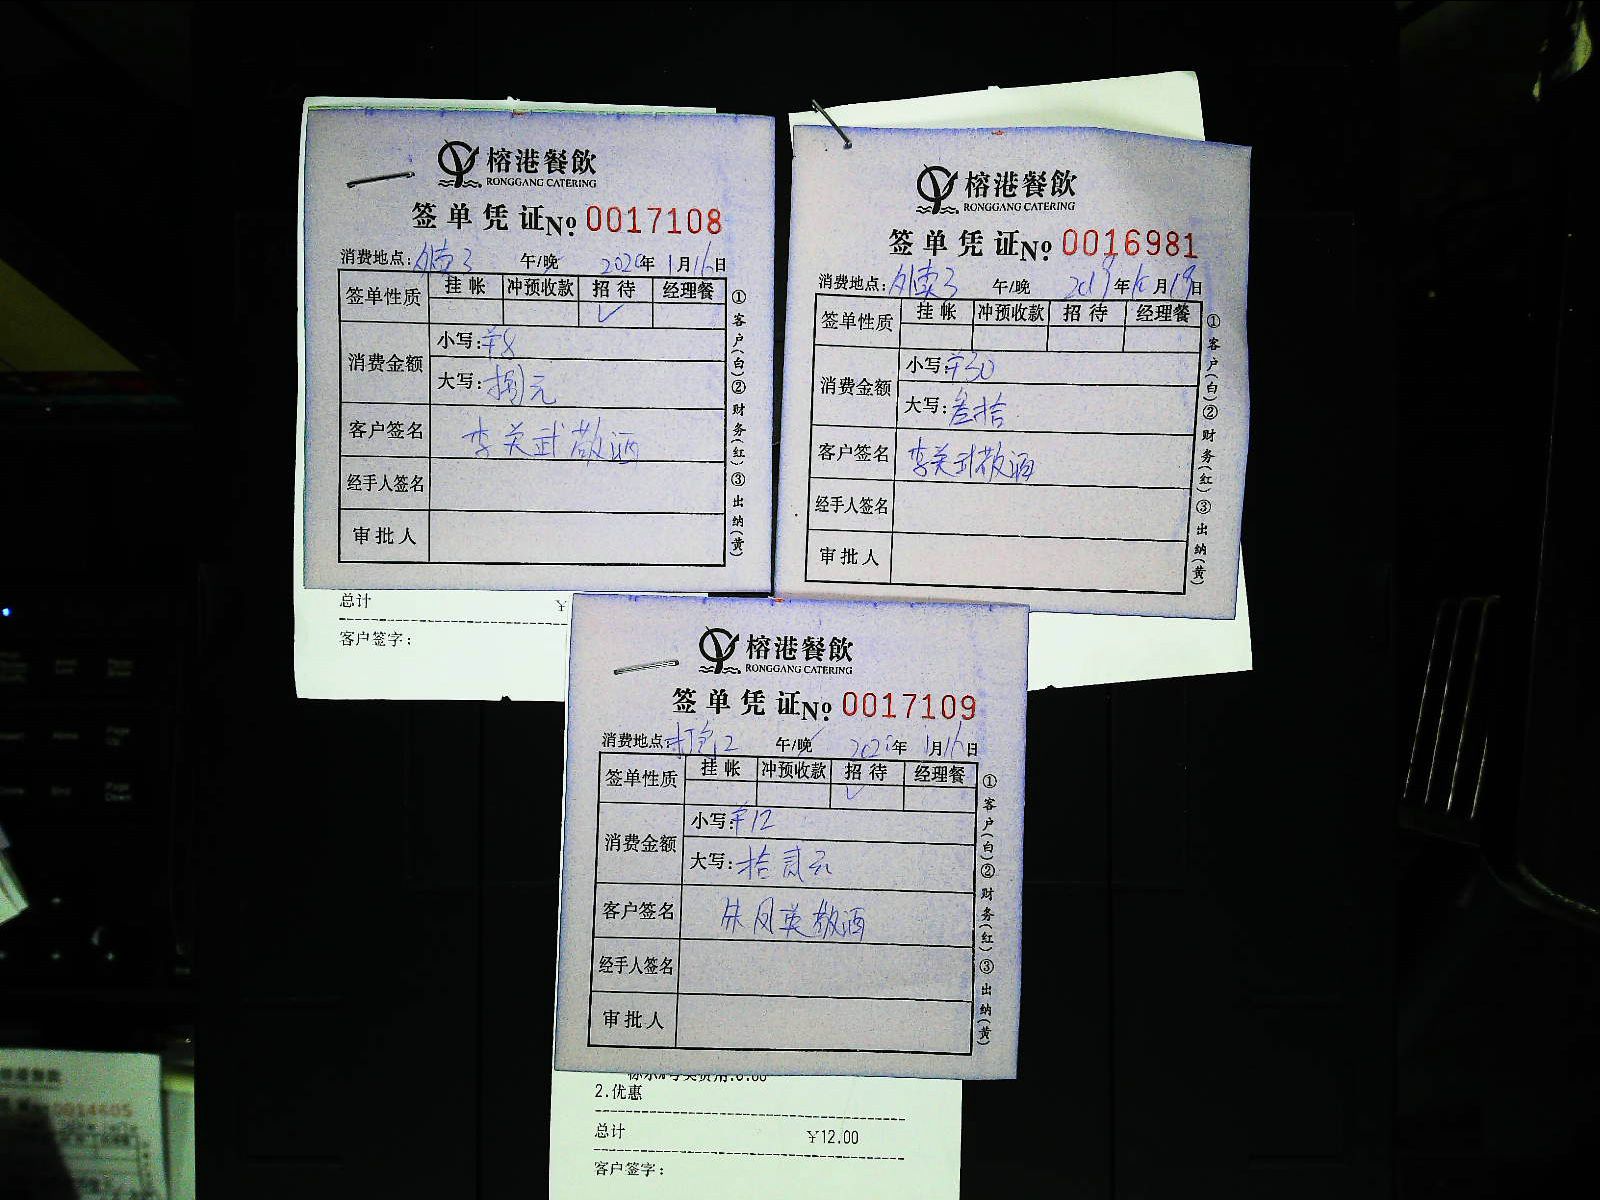 榕港餐飲
RONGGANG CATERING
签单凭证 No 0017108
消费地点: 外卖3 午/晚 2020年1月16日
签单性质 挂帐 冲预收款 招待 经理餐
✓
消费金额 小写: ¥8
大写: 捌元
客户签名 李关武敬酒
经手人签名
审批人
①客户(白)②财务(红)③出纳(黄)
总计 ¥
客户签字:
榕港餐飲
RONGGANG CATERING
签单凭证 No 0016981
消费地点: 外卖3 午/晚 2019年 月19日
签单性质 挂帐 冲预收款 招待 经理餐
消费金额 小写: ¥30
大写: 叁拾
客户签名 李关武敬酒
经手人签名
审批人
①客户(白)②财务(红)③出纳(黄)
榕港餐飲
RONGGANG CATERING
签单凭证 No 0017109
消费地点: 打包2 午/晚 年1月16日
签单性质 挂帐 冲预收款 招待 经理餐
✓
消费金额 小写: ¥12
大写: 拾贰元
客户签名 朱凤英敬酒
经手人签名
审批人
①客户(白)②财务(红)③出纳(黄)
2.优惠
总计 ¥12.00
客户签字:
0014605